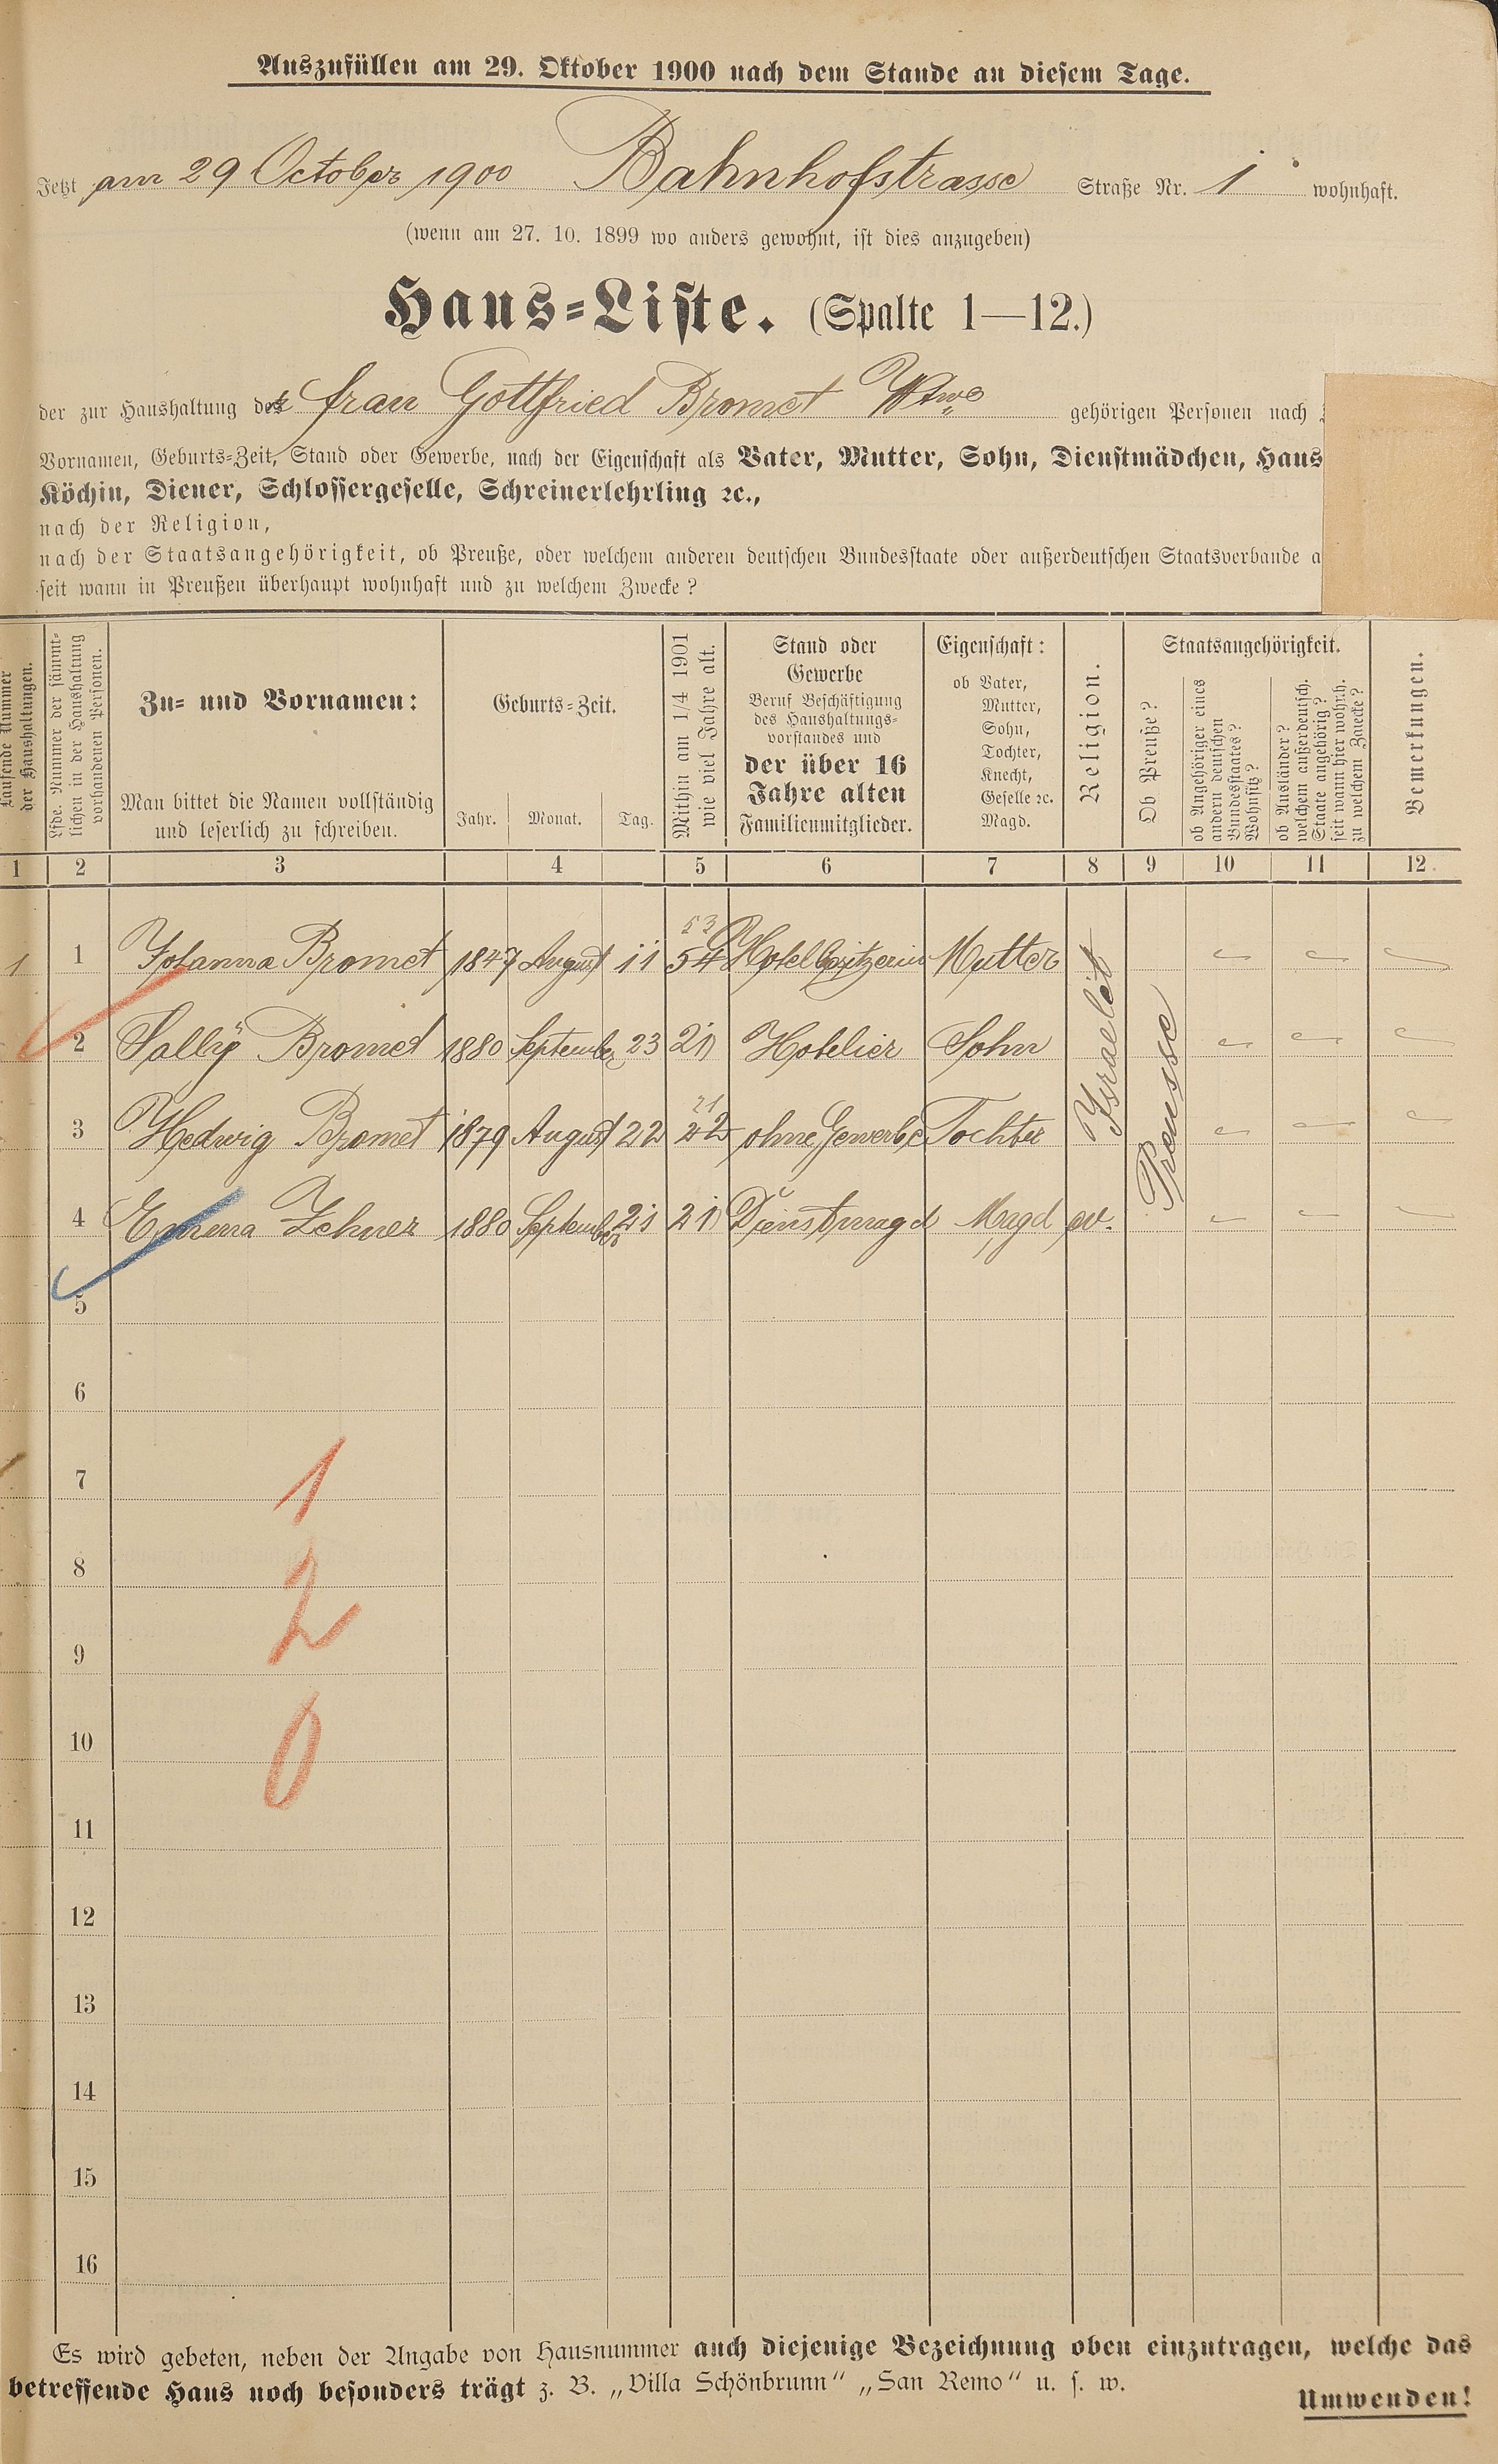 Auszufüllen am 29. Oktober 1900 nach dem Stande an diesem Tage.
Jetzt am 29 October 1900 Bahnhofstrasse Straße Nr. 1 wohnhaft.
(wenn am 27. 10. 1899 wo anders gewohnt, ist dies anzugeben)
Haus-Liste. (Spalte 1—12.)
der zur Haushaltung der frau Gottfried Bromet Wtwe gehörigen Personen nach
Vornamen, Geburts-Zeit, Stand oder Gewerbe, nach der Eigenschaft als Vater, Mutter, Sohn, Dienstmädchen, Haus
Köchin, Diener, Schlossergeselle, Schreinerlehrling ꝛc.,
nach der Religion,
nach der Staatsangehörigkeit, ob Preuße, oder welchem anderen deutschen Bundesstaate oder außerdeutschen Staatsverbande a
seit wann in Preußen überhaupt wohnhaft und zu welchem Zwecke?
Laufende Nummer
der Haushaltungen.
Lfde. Nummer der sämmt-
lichen in der Haushaltung
vorhandenen Personen.
Zu- und Vornamen:
Man bittet die Namen vollständig
und leserlich zu schreiben.
Geburts-Zeit.
Jahr. Monat. Tag.
Mithin am 1/4 1901
wie viel Jahre alt.
Stand oder
Gewerbe
Beruf Beschäftigung
des Haushaltungs-
vorstandes und
der über 16
Jahre alten
Familienmitglieder.
Eigenschaft:
ob Vater,
Mutter,
Sohn,
Tochter,
Knecht,
Geselle ꝛc.
Magd.
Religion.
Staatsangehörigkeit.
Ob Preuße?
ob Angehöriger eines
andern deutschen
Bundesstaates?
Wohnsitz?
ob Ausländer?
welchem außerdeutsch.
Staate angehörig?
seit wann hier wohnh.
zu welchem Zwecke?
Bemerkungen.
1 2 3 4 5 6 7 8 9 10 11 12.
53
1 1 Johanna Bromet 1847 August 11 54 Hotelbesitzerin Mutter Israelit
2 Sally Bromet 1880 September 23 21 Hotelier Sohn Preusse
21
3 Hedwig Bromet 1879 August 22 22 ohne Gewerbe Tochter
4 Emma Zehner 1880 September 21 21 Dienstmagd Magd ev.
5
6
7
1
8
2
9
10
0
11
12
13
14
15
16
Es wird gebeten, neben der Angabe von Hausnummer auch diejenige Bezeichnung oben einzutragen, welche das
betreffende Haus noch besonders trägt z. B. „Villa Schönbrunn“ „San Remo“ u. s. w.
Umwenden!